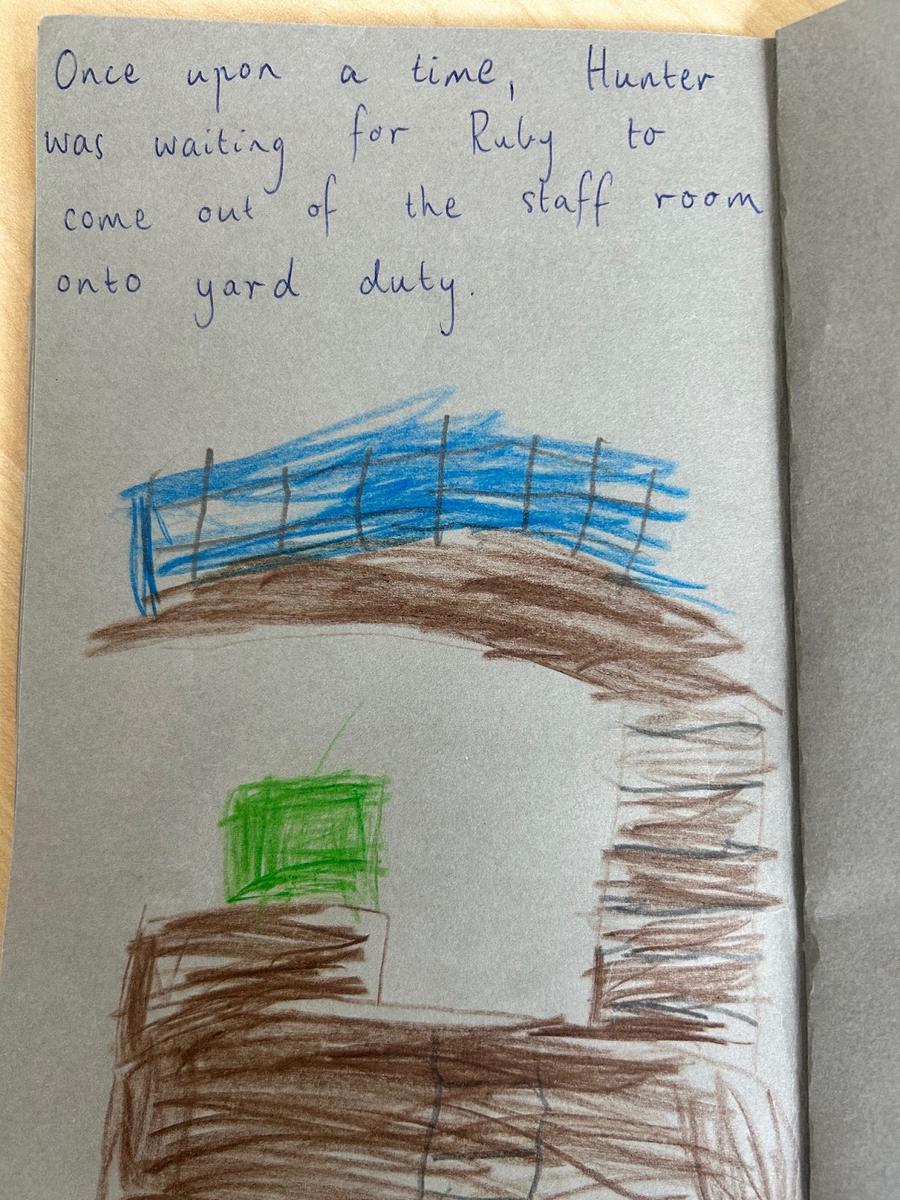 Once upon a time, Hunter
was waiting for Ruby to
come out of the staff room
onto yard duty.